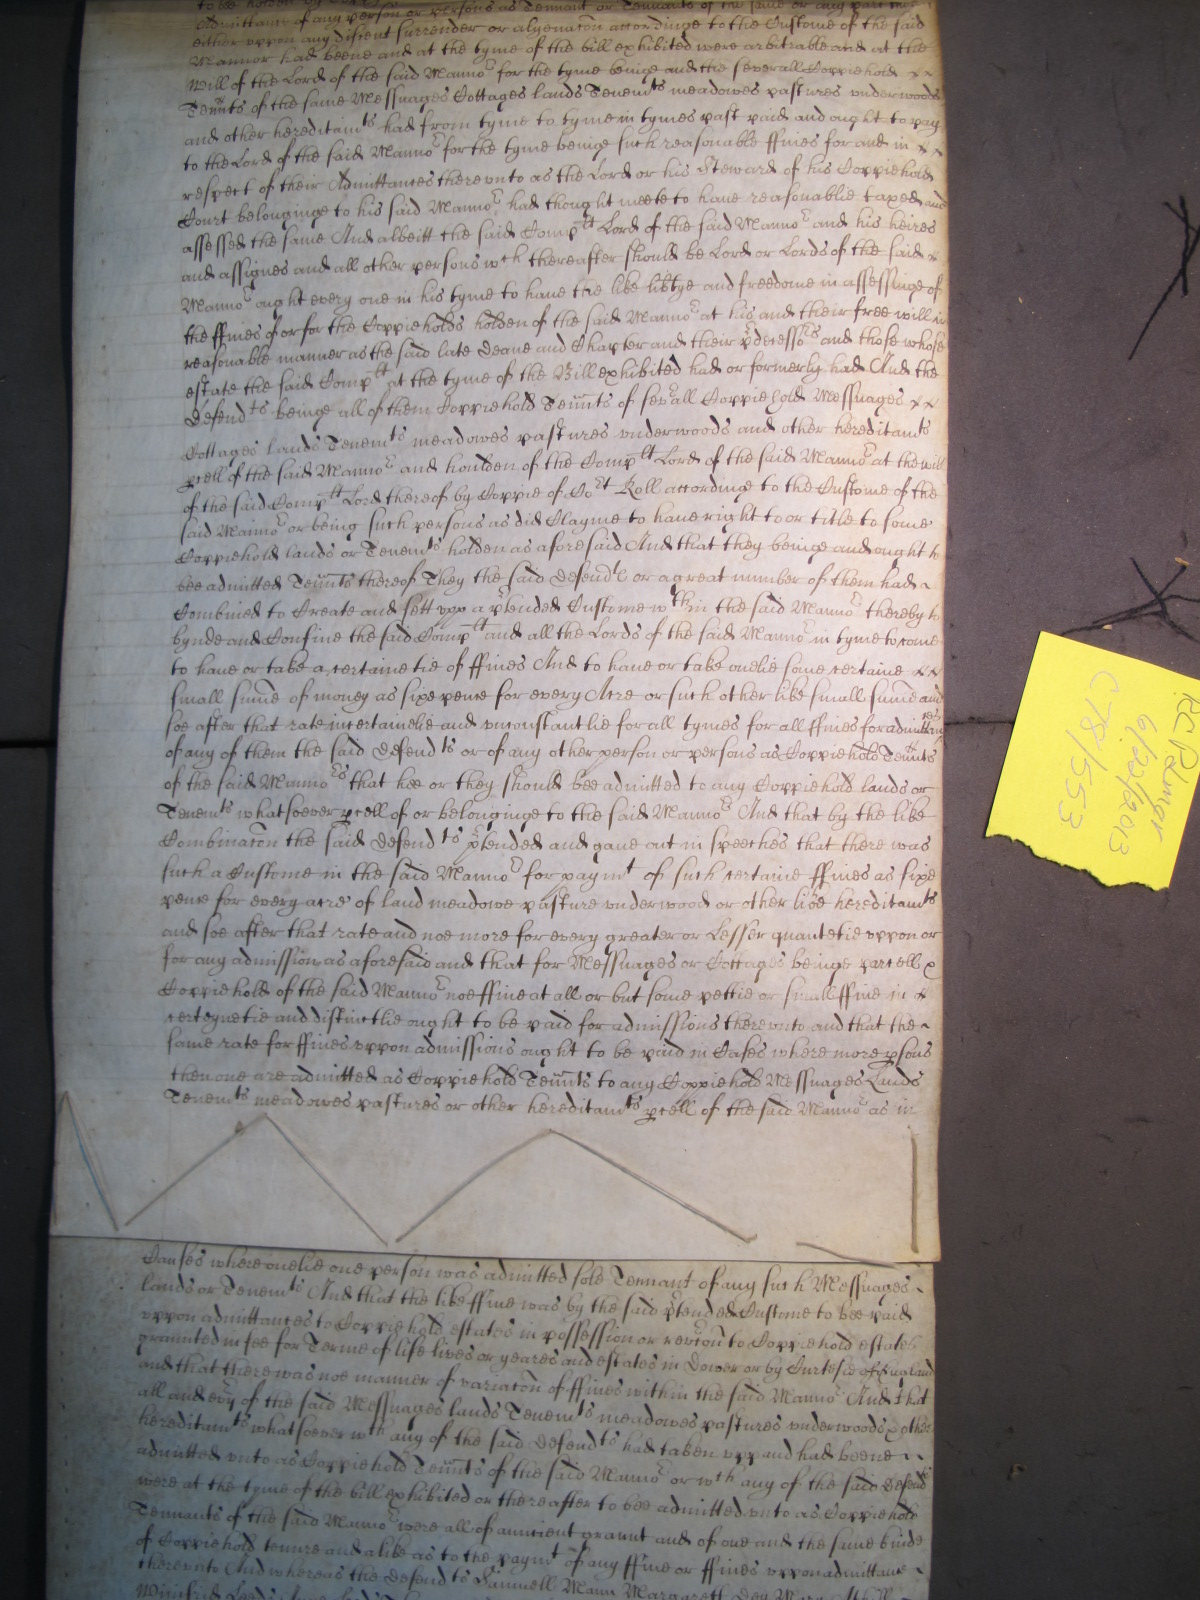 to be holden by
Admittance of any person or persons as Tennant or Tennants of the same or any part
either uppon any discent surrender or alyenacōn accordinge to the Custome of the said
Mannor had beene and at the tyme of the bill exhibited were arbitrable and at the
will of the Lord of the said Manno^r for the tyme beinge and the severall Coppiehold
Teñnts of the same Messuages Cottages lands Tenem^ts meadowes pastures underwoods
and other hereditam^ts had from tyme to tyme in tymes past paid and ought to pay
to the Lord of the said Manno^r for the tyme beinge such reasonable ffines for and in
respect of their Admittances thereunto as the Lord or his Steward of his Coppiehold
Court belonginge to his said Manno^r had thought meete to have reasonablie taxed and
assessed the same And albeitt the said Comp^lt Lord of the said Manno^r and his heires
and assignes and all other persons w^ch thereafter should be Lord or Lords of the said
Manno^r ought every one in his tyme to have the like lib̃tye and freedome in assessinge of
the ffines of or for the Coppieholds holden of the said Manno^r at his and their free will in
reasonable manner as the said late Deane and Chapter and their p̃decesso^rs and those whose
estate the said Comp^lt at the tyme of the Bill exhibited had or formerly had And the
Defend^ts beinge all of them Coppiehold Teñnts of sev̄all Coppiehold Messuages
Cottages lands Tenem^ts meadowes pastures underwoods and other hereditam^ts
p̱cell of the said Manno^r and houlden of the Comp^lt Lord of the said Manno^r at the will
of the said Comp^lt Lord thereof by Coppie of Co^rt Roll accordinge to the Custome of the
said Manno^r or being such persons as did Clayme to have right to or title to some
Coppiehold lands or Tenem^ts holden as aforesaid And that they beinge and ought to
bee admitted Teñnts thereof They the said Defend^ts or a great number of them had
Combined to Create and sett upp a p̃tended Custome w^thin the said Manno^r thereby to
bynde and Confine the said Comp^lt and all the Lords of the said Manno^r in tyme to come
to have or take a certainetie of ffines And to have or take onelie some certaine
small sum̃e of money as sixe pence for every Acre or such other like small sum̃e and
soe after that rate incertainelie and unconstantlie for all tymes for all ffines for admittan^ces
of any of them the said Defend^ts or of any other person or persons as Coppiehold Teñnts
of the said Manno^r that hee or they should bee admitted to any Coppiehold lands or
Tenem^ts whatsoever p̱cell of or belonginge to the said Manno^r And that by the like
Combinacōn the said Defend^ts p̃tended and gave out in speeches that there was
such a Custome in the said Manno^r for paym^t of such certaine ffines as sixe
pence for every acre of land meadowe pasture underwood or other like hereditam^ts
and soe after that rate and noe more for every greater or Lesser quantetie uppon or
for any admission as aforesaid and that for Messuages or Cottages beinge parcell
Coppiehold of the said Manno^r noe ffine at all or but some pettie or small ffine in
certeynetie and distinctlie ought to be paid for admissions thereunto and that the
same rate for ffines uppon admissions ought to be paid in Cases where more p̱sons
then one are admitted as Coppiehold Teñnts to any Coppiehold Messuages Lands
Tenem^ts meadowes pastures or other hereditam^ts p̱cell of the said Manno^r as in
Causes where onelie one person was admitted sole Tennant of any such Messuages
lands or Tenem^ts And that the like ffine was by the said p̃tended Custome to bee paid
uppon admittances to Coppiehold estates in possession or rev̄cōn to Coppiehold estates
graunted in fee for Terme of life lives or yeares and estates in Dower or by Curtesie of England
and that there was noe manner of variacōn of ffines within the said Manno^r And that
all and ev̄y of the said Messuages lands Tenem^ts meadowes pastures underwoods & other
hereditam^ts whatsoever w^ch any of the said Defend^ts had taken upp and had beene
admitted unto as Coppiehold Teñnts of the said Manno^r or w^ch any of the said Defend^ts
were at the tyme of the bill exhibited or thereafter to bee admitted unto as Coppiehold
Tennants of the said Manno^r were all of auncient graunt and of one and the same kinde
of Coppiehold tenure and alike as to the paym^t of any ffine or ffines uppon admittance
thereunto And whereas the Defend^ts Samuell Mann Margarett
RCP Unger
6/22/2013
C78/553